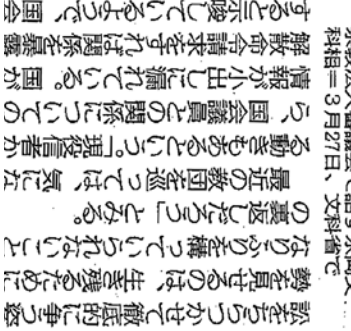 訟をちらつかせて徹底的に争う姿
勢を見せるのは、生き残るために
なりふりを構っていられないこと
の裏返しだろう」とみる。
最近の教団を巡っては、気にな
る動きもあるという。「現役信者か
ら、国会議員との関係についての
情報が小出しに漏れている。国が
解散命令請求をすれば関係を暴露
すると示唆しているようで、国会
科相＝3月27日、文科省で